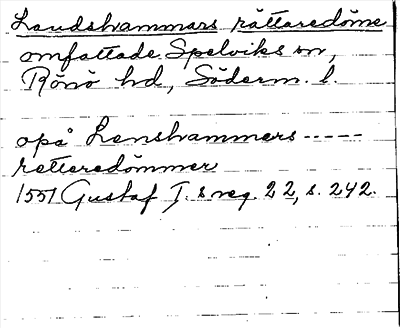 Landshammars rättaredöme
omfattade Spelviks sn,
Rönö hd, Söderm. l.
opå Lenshammers -----
retteredömmer
1551 Gustaf I. s reg. 22, s. 242.